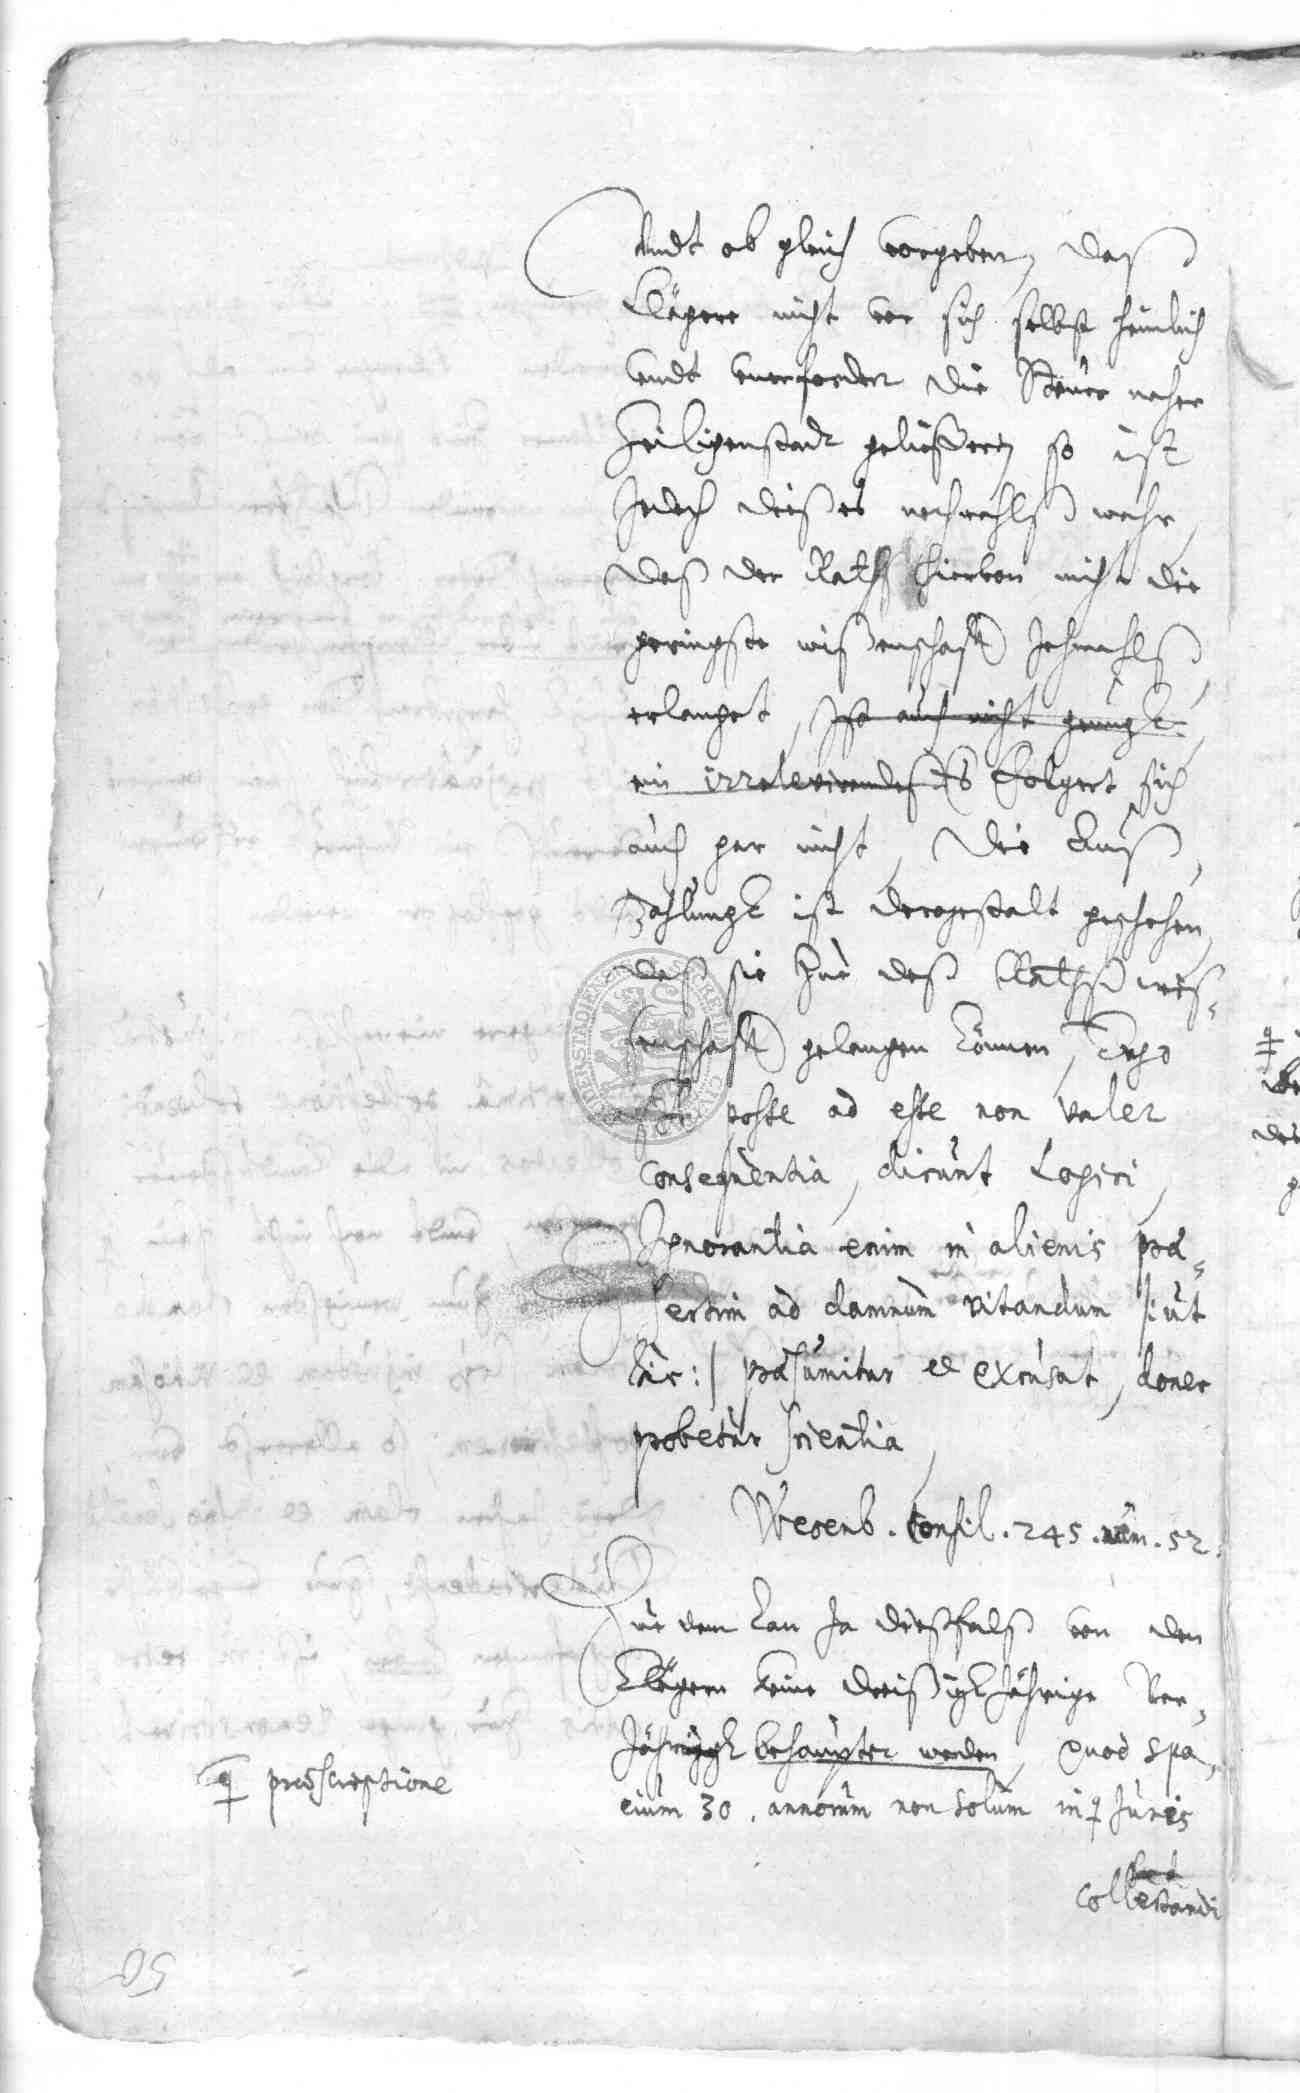 Undt ob gleich vorgeben, daß
Klägere nicht vor sich selbst heimlich
undt unerfordert die Steüer naher
Heiligenstadt gelieffert, so ist
Jedoch dießes nachmahlß wahr,
daß der Rath hiervon nicht die
geringste wißenschafft Jehmahlß
erlanget, Ist auch nicht genugk
ein irrelevirendes Es folgert sich
auch gar nicht, die Auß
Zahlungk ist dergestalt geschehen,
daß sie Zue deß Rathß wiß-
senschafft gelangen können, Ergo
posse ad esse non valet
consequentia, dicunt Logici,
Ignorantia enim in alienis præ-
sertim ad damnum vitandum sicut
hic :/ præsumitur et excusat, donec
probetur scientia,
Wesenb. Consil. 245. num. 52.
Zue dem kan Ja dießfalß von den
Klägern keine dreißigkJährige Ver-
Jährungk behaupter werden, Quod spa-
cium 30. annorum non solum in Juris
præscriptione
collectandi
50